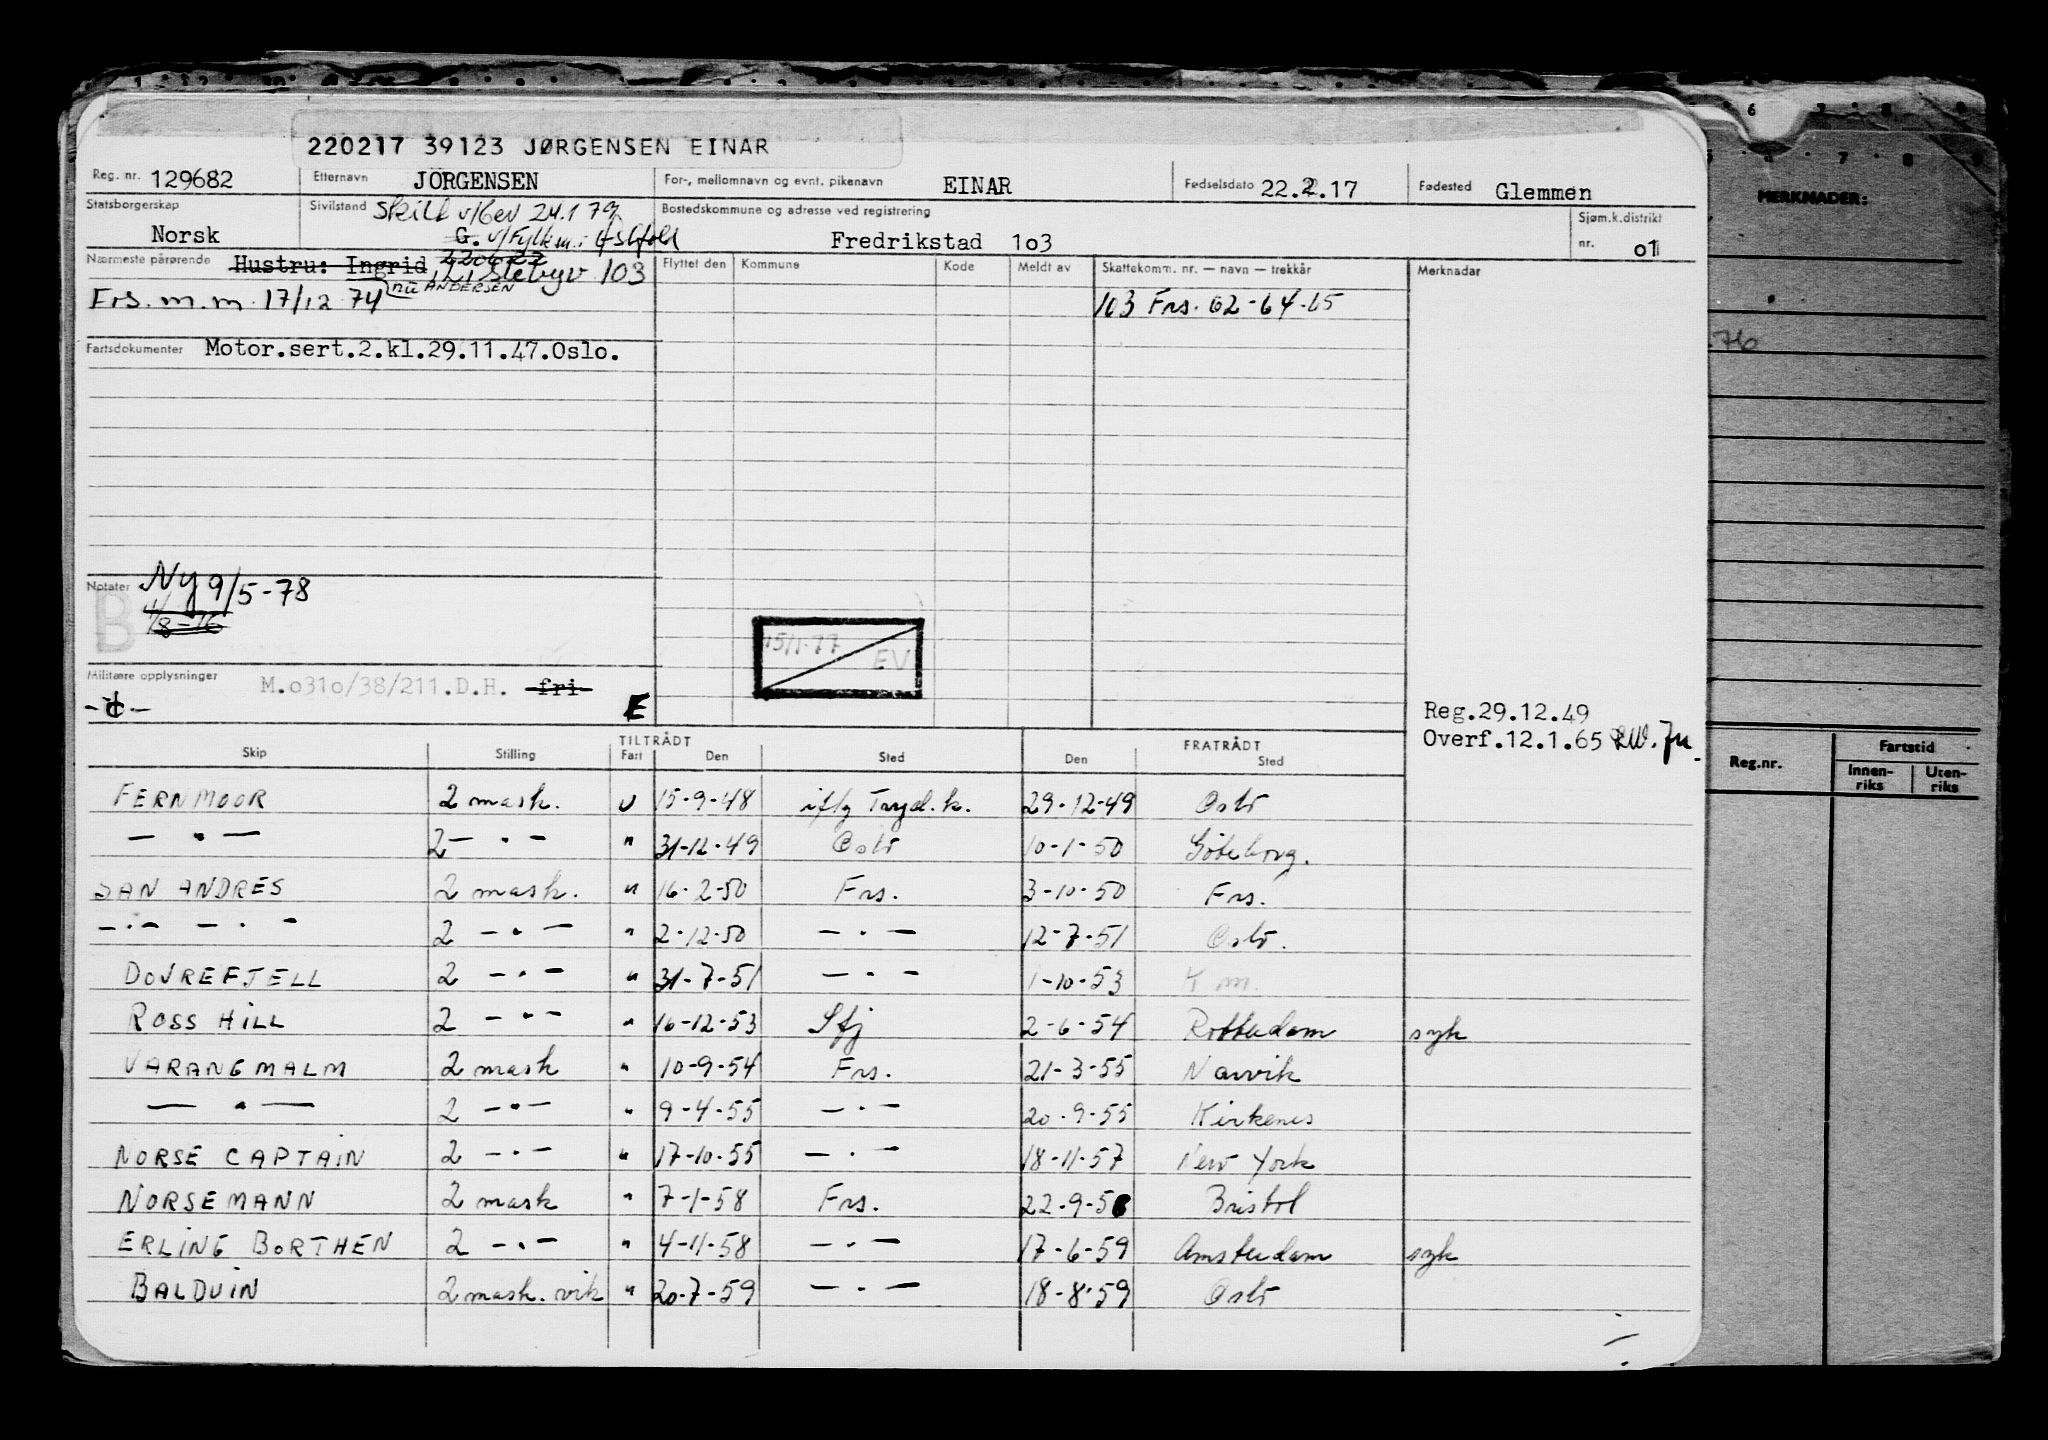 220217 39123 JØRGENSEN EINAR
Reg. nr. 129682 Etternavn JÖRGENSEN For-, mellomnavn og evnt. pikenavn EINAR Fødselsdato 22.2.17 Fødested Glemmen
Statsborgerskap Norsk Sivilstand Skilt v/bev 24.1 79 Bostedskommune og adresse ved registrering Fredrikstad 1o3 Sjøm.k.distrikt nr. o1
G. v/Fylkm. i Østfold
Nærmeste pårørende Hustru: Ingrid 103 Flyttet den Kommune Kode Meldt av Skattekomm. nr. — navn — trekkår Merknadar
nu ANDERSEN
Frs. m.m 17/12 74 103 Frs. 62-64-65
Fartsdokumenter Motor.sert.2.kl.29.11.47.Oslo.
Notater Ny 9/5-78
B
4/8-76
15/1-77 EV
Militære opplysninger M.o31o/38/211.D.H. fri
E
Reg.29.12.49
Overf.12.1.65
Skip Stilling TILTRÅDT Fart Den Sted FRATRÅDT Den Sted
FERNMOOR 2 mask. U 15-9-48 iflg Trygd.k. 29-12-49 Oslo
— " — 2 — " — " 31-12-49 Oslo 10-1-50 Göteborg.
SAN ANDRES 2 mask. " 16-2-50 Frs. 3-10-50 Frs.
— " — — " — 2 — " — " 2-12-50 — " — 12-7-51 Oslo.
DOVREFJELL 2 — " — " 31-7-51 — " — 1-10-53 K m.
ROSS HILL 2 — " — " 16-12-53 Sfj 2-6-54 Rotterdam syk
VARANGMALM 2 mask " 10-9-54 Frs. 21-3-55 Narvik
— " — 2 — " — " 9-4-55 — " — 20-9-55 Kirkenes
NORSE CAPTAIN 2 — " — " 17-10-55 — " — 18-11-57 New York
NORSEMANN 2 mask " 7-1-58 Frs. 22-9-58 Bristol
ERLING BORTHEN 2 — " — " 4-11-58 — " — 17-6-59 Amsterdam syk
BALDUIN 2 mask. vik " 20-7-59 — " — 18-8-59 Oslo
MERKNADER:
76
Reg.nr. Fartstid
Innen-riks Uten-riks
6 7 8 9